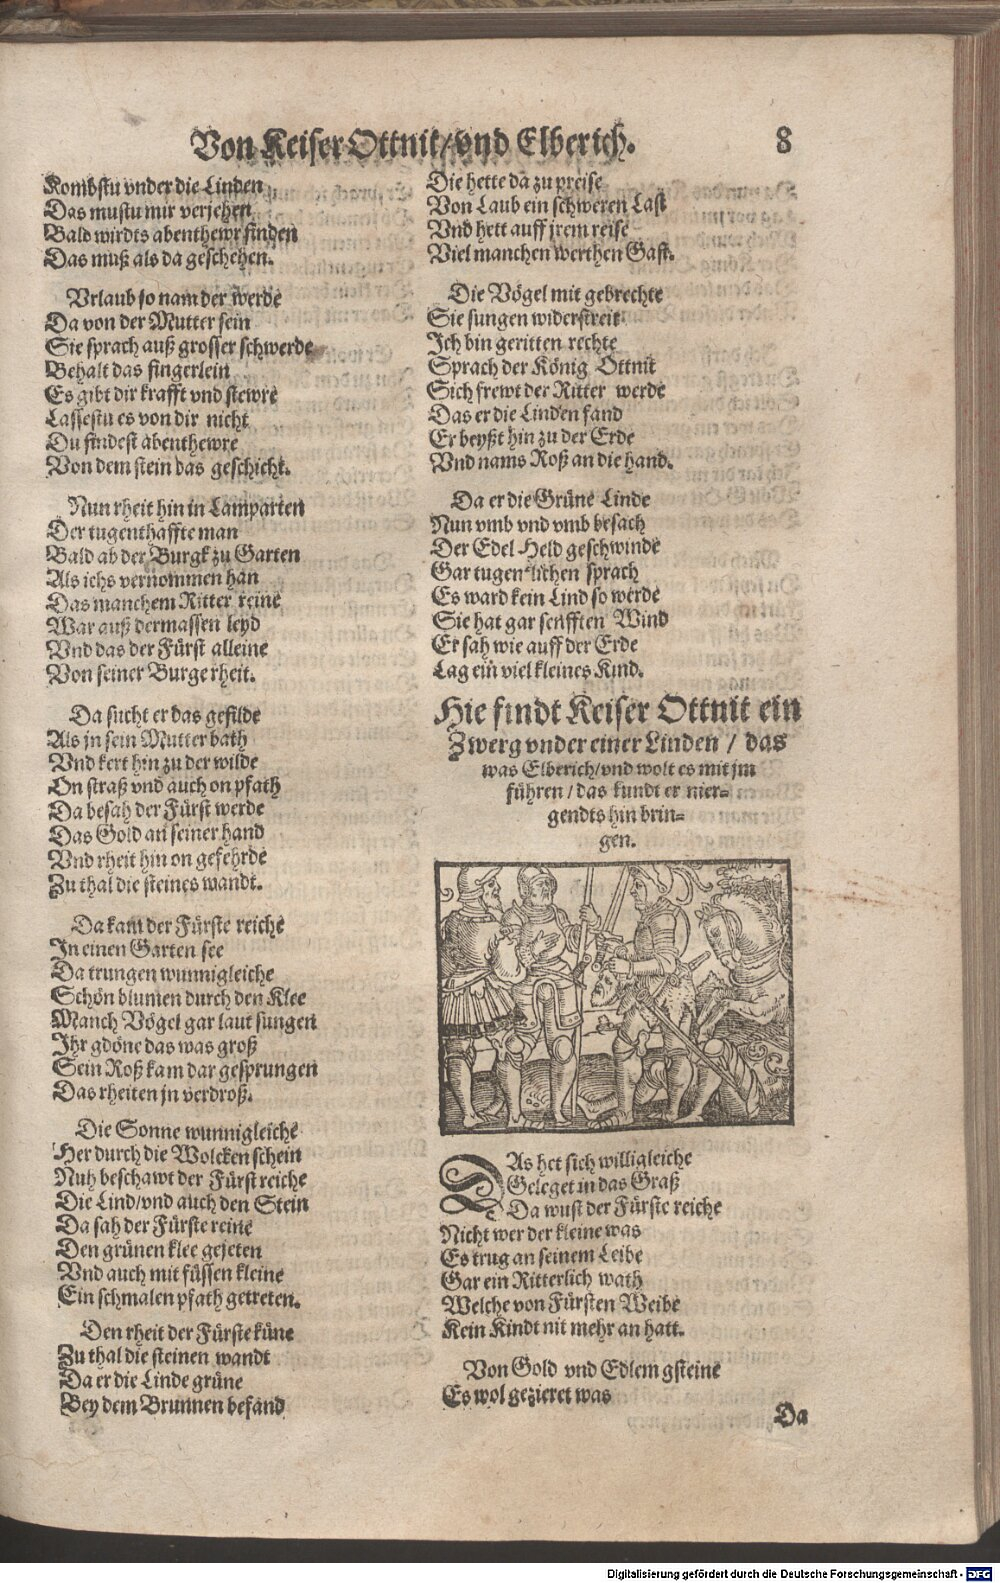 Von Keiser Ottnit/vnd Elberich. 8
Kombstu vnder die Linden
Das mustu mir verjehen
Bald wirdts abenthewr finden
Das muß als da geschehen.
Vrlaub so nam der werde
Da von der Mutter sein
Sie sprach auß grosser schwerde
Behalt das fingerlein
Es gibt dir krafft vnd stewre
Lassestu es von dir nicht
Du findest abenthewre
Von dem stein das geschicht.
Nun rheit hin in Lamparten
Der tugenthaffte man
Bald ab der Burgk zu Garten
Als ichs vernommen han
Das manchem Ritter reine
War auß dermassen leyd
Vnd das der Fürst alleine
Von seiner Burge rheit.
Da sucht er das gefilde
Als jn sein Mutter bath
Vnd kert hin zu der wilde
On straß vnd auch on pfath
Da besah der Fürst werde
Das Gold an seiner hand
Vnd rheit hin on gefehrde
Zu thal die steines wandt.
Da kam der Fürste reiche
In einen Garten see
Da trungen wunnigleiche
Schön blumen durch den Klee
Manch Vögel gar laut sungen
Ihr gdöne das was groß
Sein Roß kam dar gesprungen
Das rheiten jn verdroß.
Die Sonne wunnigleiche
Her durch die Wolcken schein
Nuh beschawt der Fürst reiche
Die Lind/vnd auch den Stein
Da sah der Fürste reine
Den grünen klee gejeten
Vnd auch mit füssen kleine
Ein schmalen pfath getreten.
Den rheit der Fürste küne
Zu thal die steinen wandt
Da er die Linde grüne
Bey dem Brunnen befand
Die hette da zu preise
Von Laub ein schweren Last
Vnd hett auff jrem reise
Viel manchen werthen Gast.
Die Vögel mit gebrechte
Sie sungen widerstreit
Ich bin geritten rechte
Sprach der König Ottnit
Sich frewt der Ritter werde
Das er die Linden fand
Er beyßt hin zu der Erde
Vnd nams Roß an die hand.
Da er die Grüne Linde
Nun vmb vnd vmb besach
Der Edel Held geschwinde
Gar tugentlichen sprach
Es ward kein Lind so werde
Sie hat gar senfften Wind
Er sah wie auff der Erde
Lag ein viel kleines Kind.
Hie findt Keiser Ottnit ein
Zwerg vnder einer Linden / das
was Elberich/vnd wolt es mit jm
führen / das kundt er nier-
gendts hin brin-
gen.
DAs het sich willigleiche
Geleget in das Graß
Da wust der Fürste reiche
Nicht wer der kleine was
Es trug an seinem Leibe
Gar ein Ritterlich wath
Welche von Fürsten Weibe
Kein Kindt nit mehr an hatt.
Von Gold vnd Edlem gsteine
Es wol gezieret was
Da
Digitalisierung gefördert durch die Deutsche Forschungsgemeinschaft - DFG